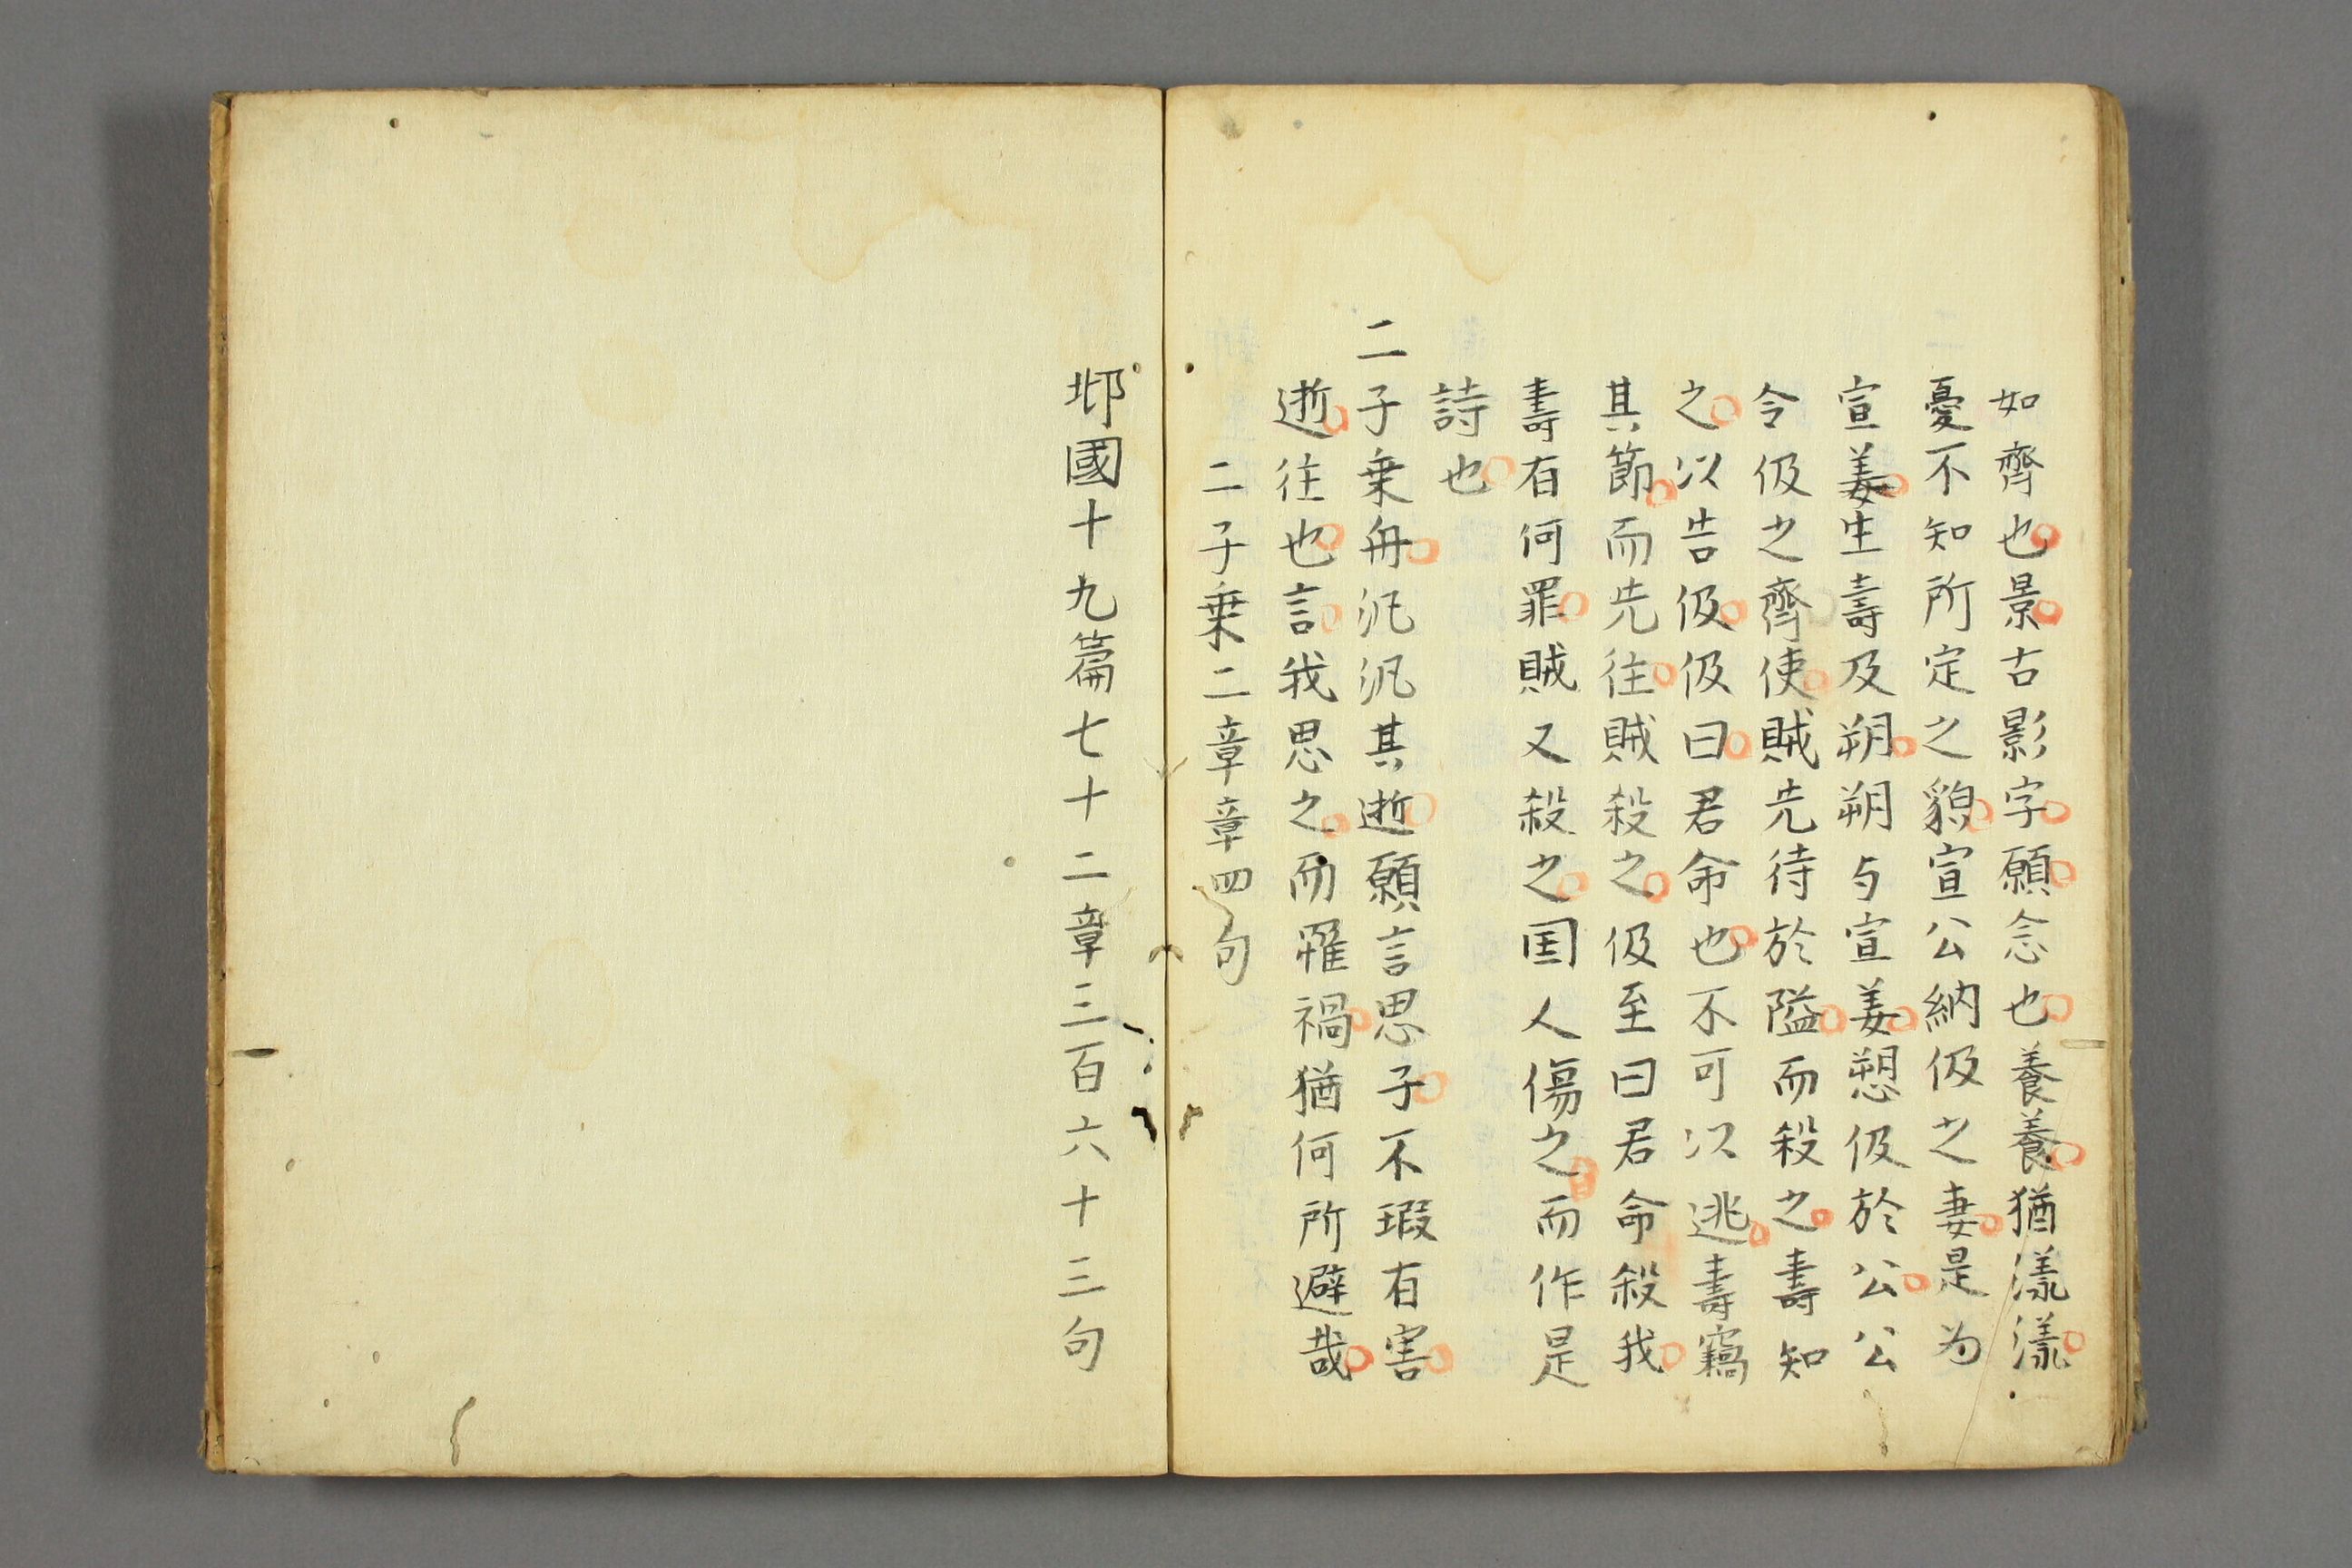 如齊也景古影字願念也養養猶漾漾
憂不知所定之貌宣公納伋之妻是为
宣姜生壽及朔朔与宣姜愬伋於公公
令伋之齊使賊先待於隘而殺之壽知
之以告伋伋曰君命也不可以逃壽竊
其節而先往賊殺之伋至曰君命殺我
壽有何罪賊又殺之囯人傷之而作是
詩也
二子乗舟汎汎其逝願言思子不瑕有害
逝往也言我思之而罹禍猶何所避哉
二子乗二章章四句
邶國十九篇七十二章三百六十三句